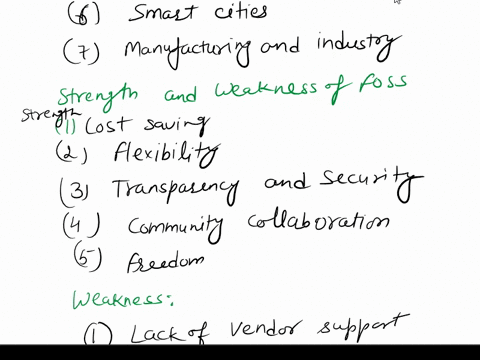 (6) Smart cities
(7) Manufacturing and industry
Strength and weakness of foss
Strength
(1) Cost saving
(2) flexibility
(3) Transparency and Security
(4) Community collaboration
(5) freedom
Weakness:
(1) Lack of vendor support